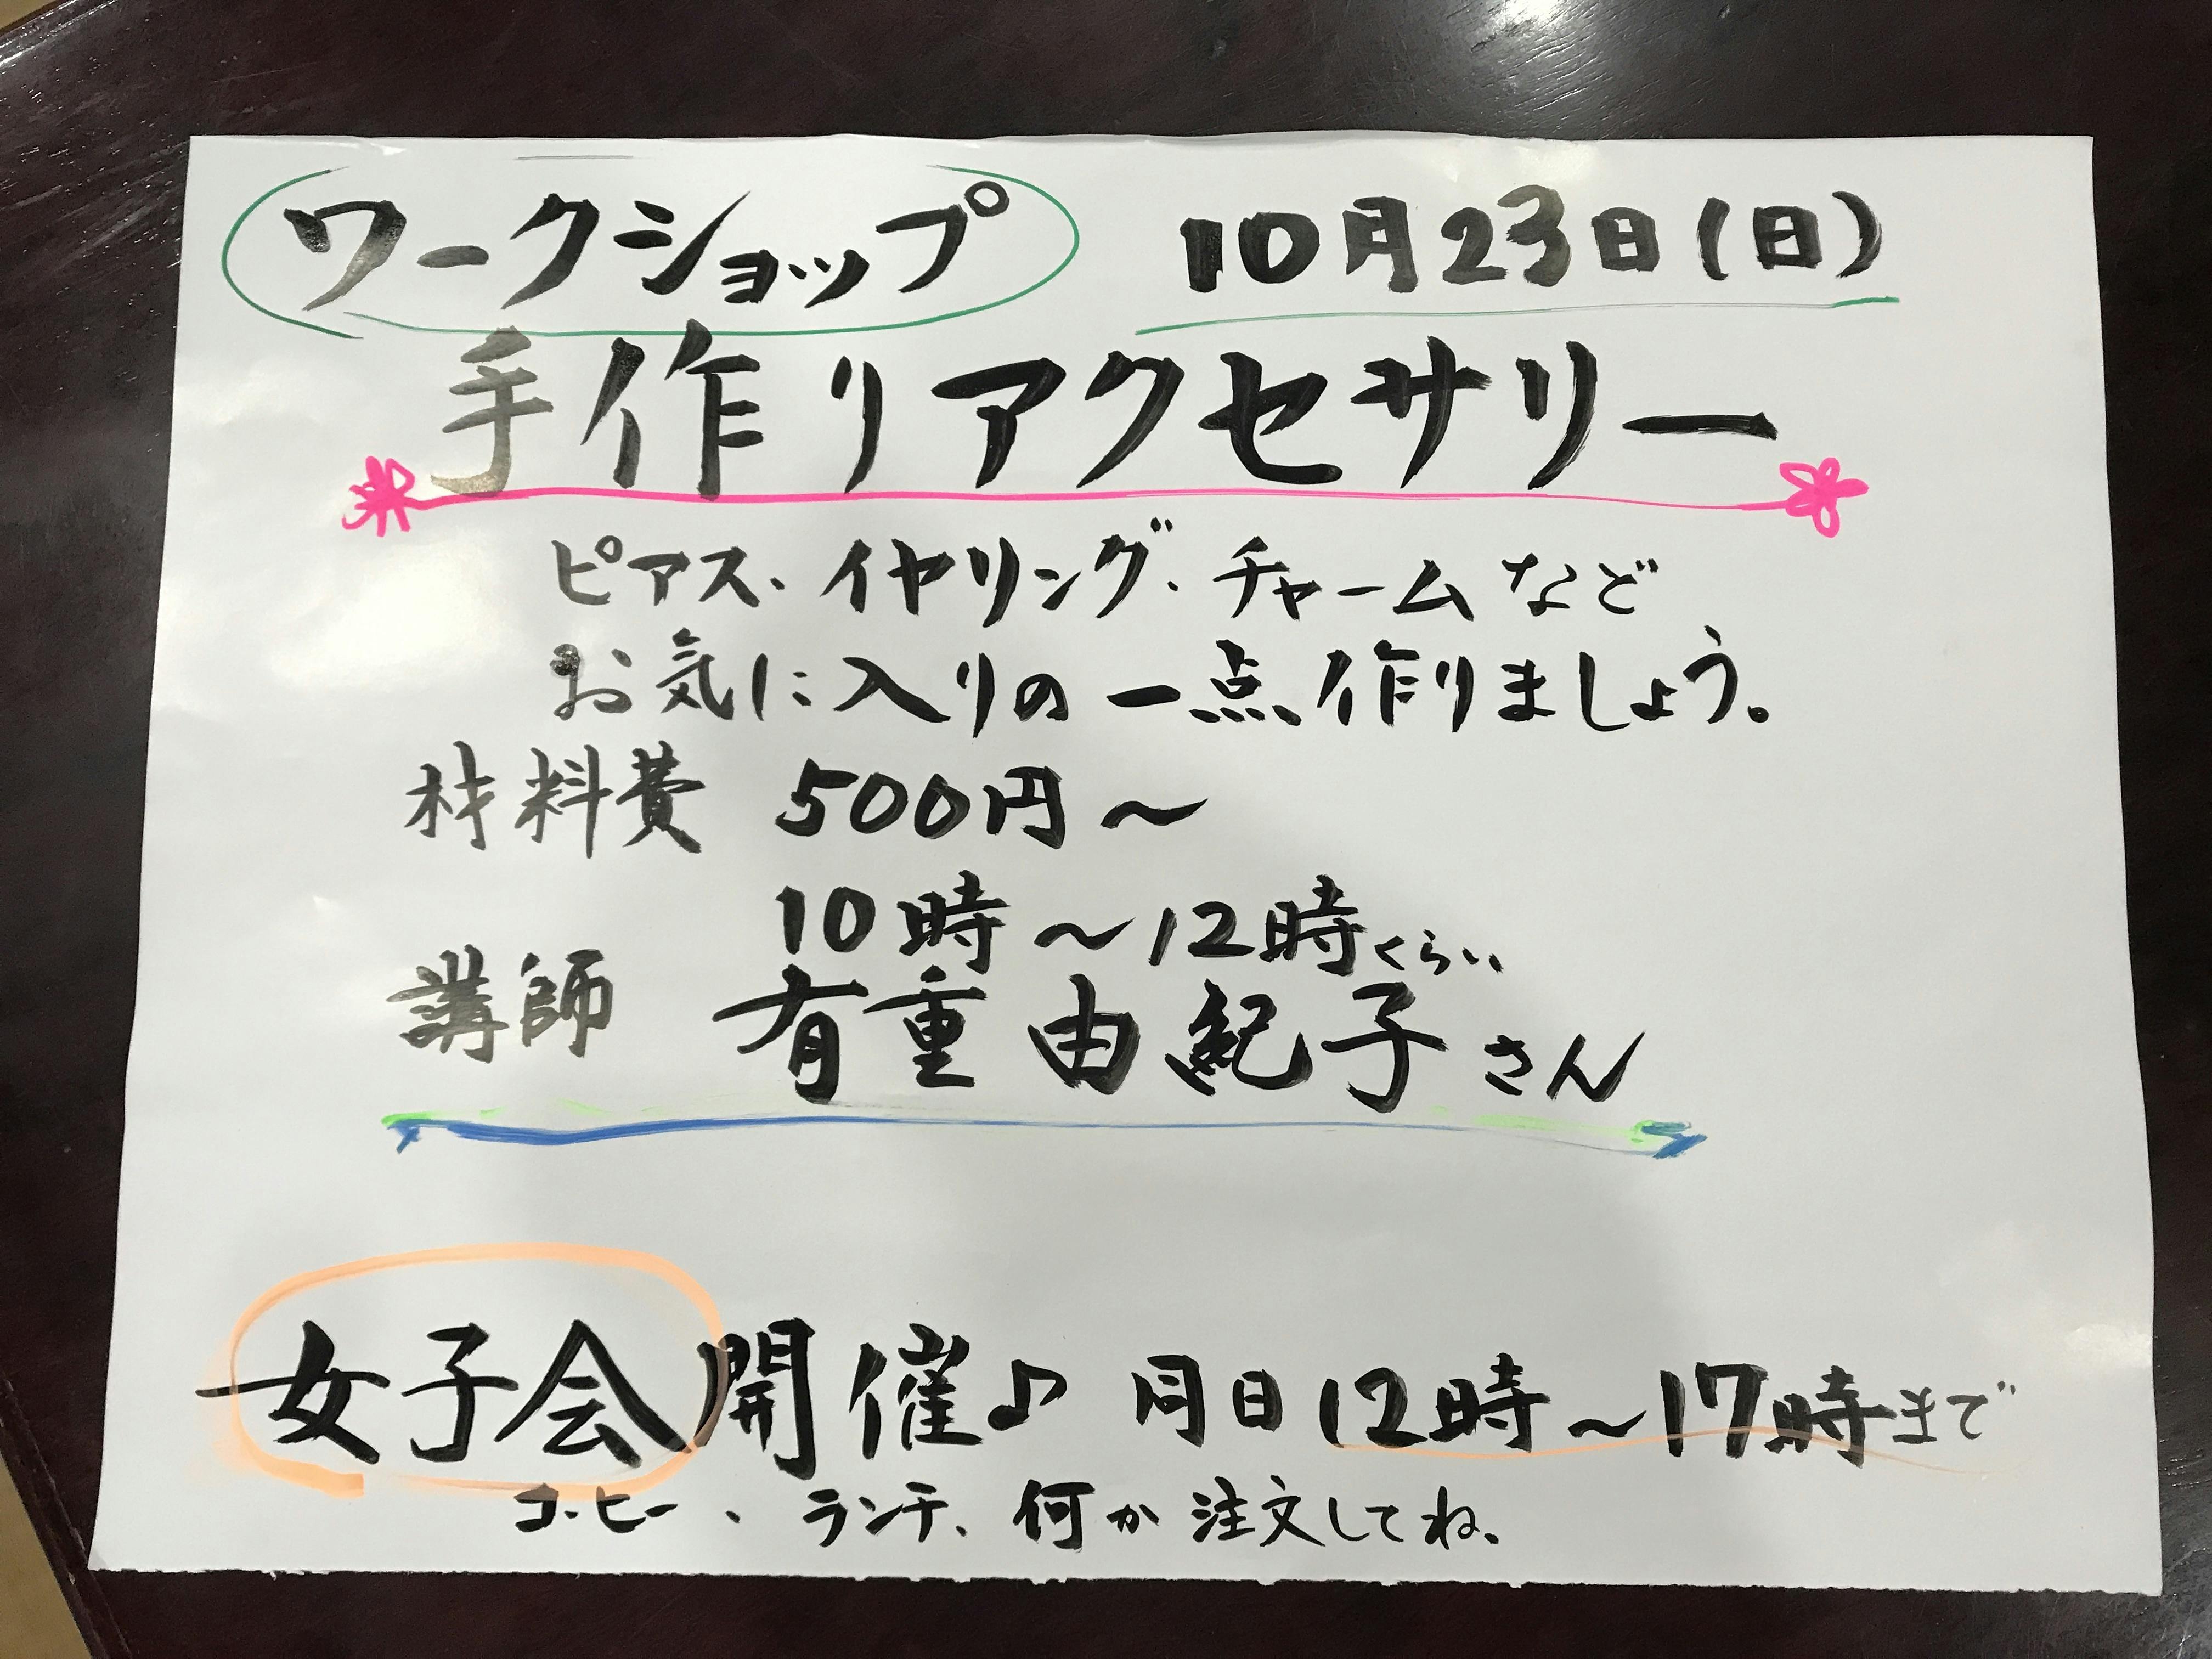 ワークショップ 10月23日(日)
手作りアクセサリー
ピアス、イヤリング、チャームなど
お気に入りの一点作りましょう。
材料費 500円～
10時～12時くらい
講師 有重由紀子さん
女子会開催♪ 同日12時～17時まで
コーヒー、ランチ、何か注文してね、